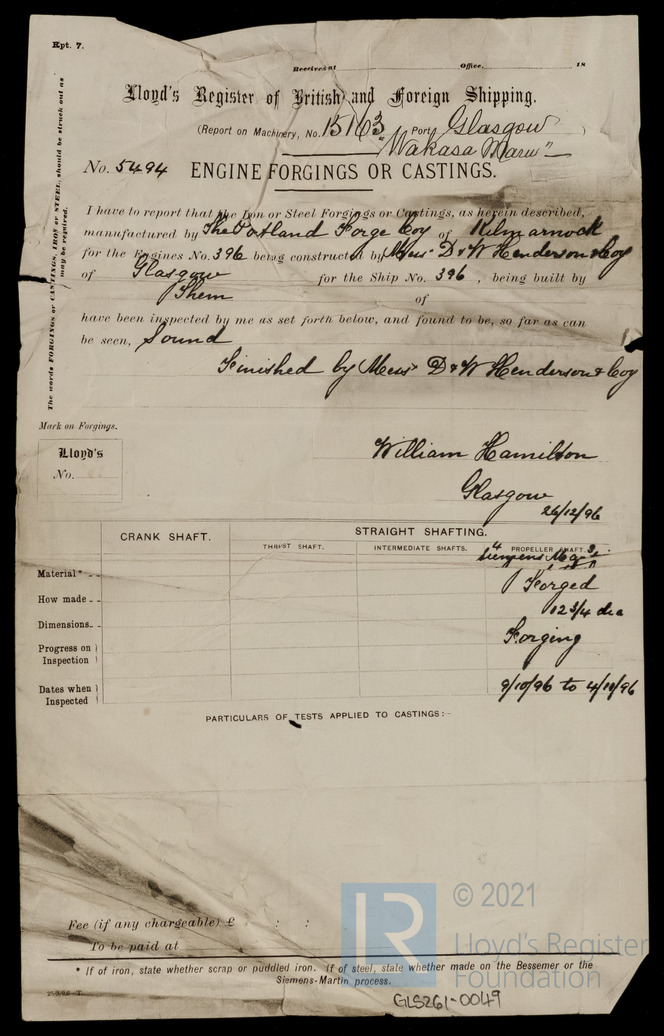 Rpt. 7.
Received at Office, 18
Lloyd's Register of British and Foreign Shipping.
(Report on Machinery, No. 15163 Port Glasgow )
"Wakasa Maru"
No. 5494 ENGINE FORGINGS OR CASTINGS.
The words FORGINGS or CASTINGS, IRON or STEEL, should be struck out as
may be required.
I have to report that the Iron or Steel Forgings or Castings, as herein described,
manufactured by The Portland Forge Coy of Kilmarnock
for the Engines No. 396 being constructed by Mess D & W Henderson & Coy
of Glasgow for the Ship No. 396 , being built by
Them of
have been inspected by me as set forth below, and found to be, so far as can
be seen, Sound
Finished by Mess D & W Henderson & Coy
Mark on Forgings.
Lloyd's
No.
William Hamilton
Glasgow
26/12/96
CRANK SHAFT. STRAIGHT SHAFTING.
THRUST SHAFT. INTERMEDIATE SHAFTS. PROPELLER SHAFT.
Material* Siemens
How made Forged
Dimensions 12 3/4 dia
Progress on
Inspection Forging
Dates when
Inspected 9/10/96 to 4/11/96
PARTICULARS OF TESTS APPLIED TO CASTINGS:-
Fee (if any chargeable) £ : :
To be paid at
* If of iron, state whether scrap or puddled iron. If of steel, state whether made on the Bessemer or the
Siemens-Martin process.
GLS261-0049
LR
© 2021
Lloyd's Register
Foundation